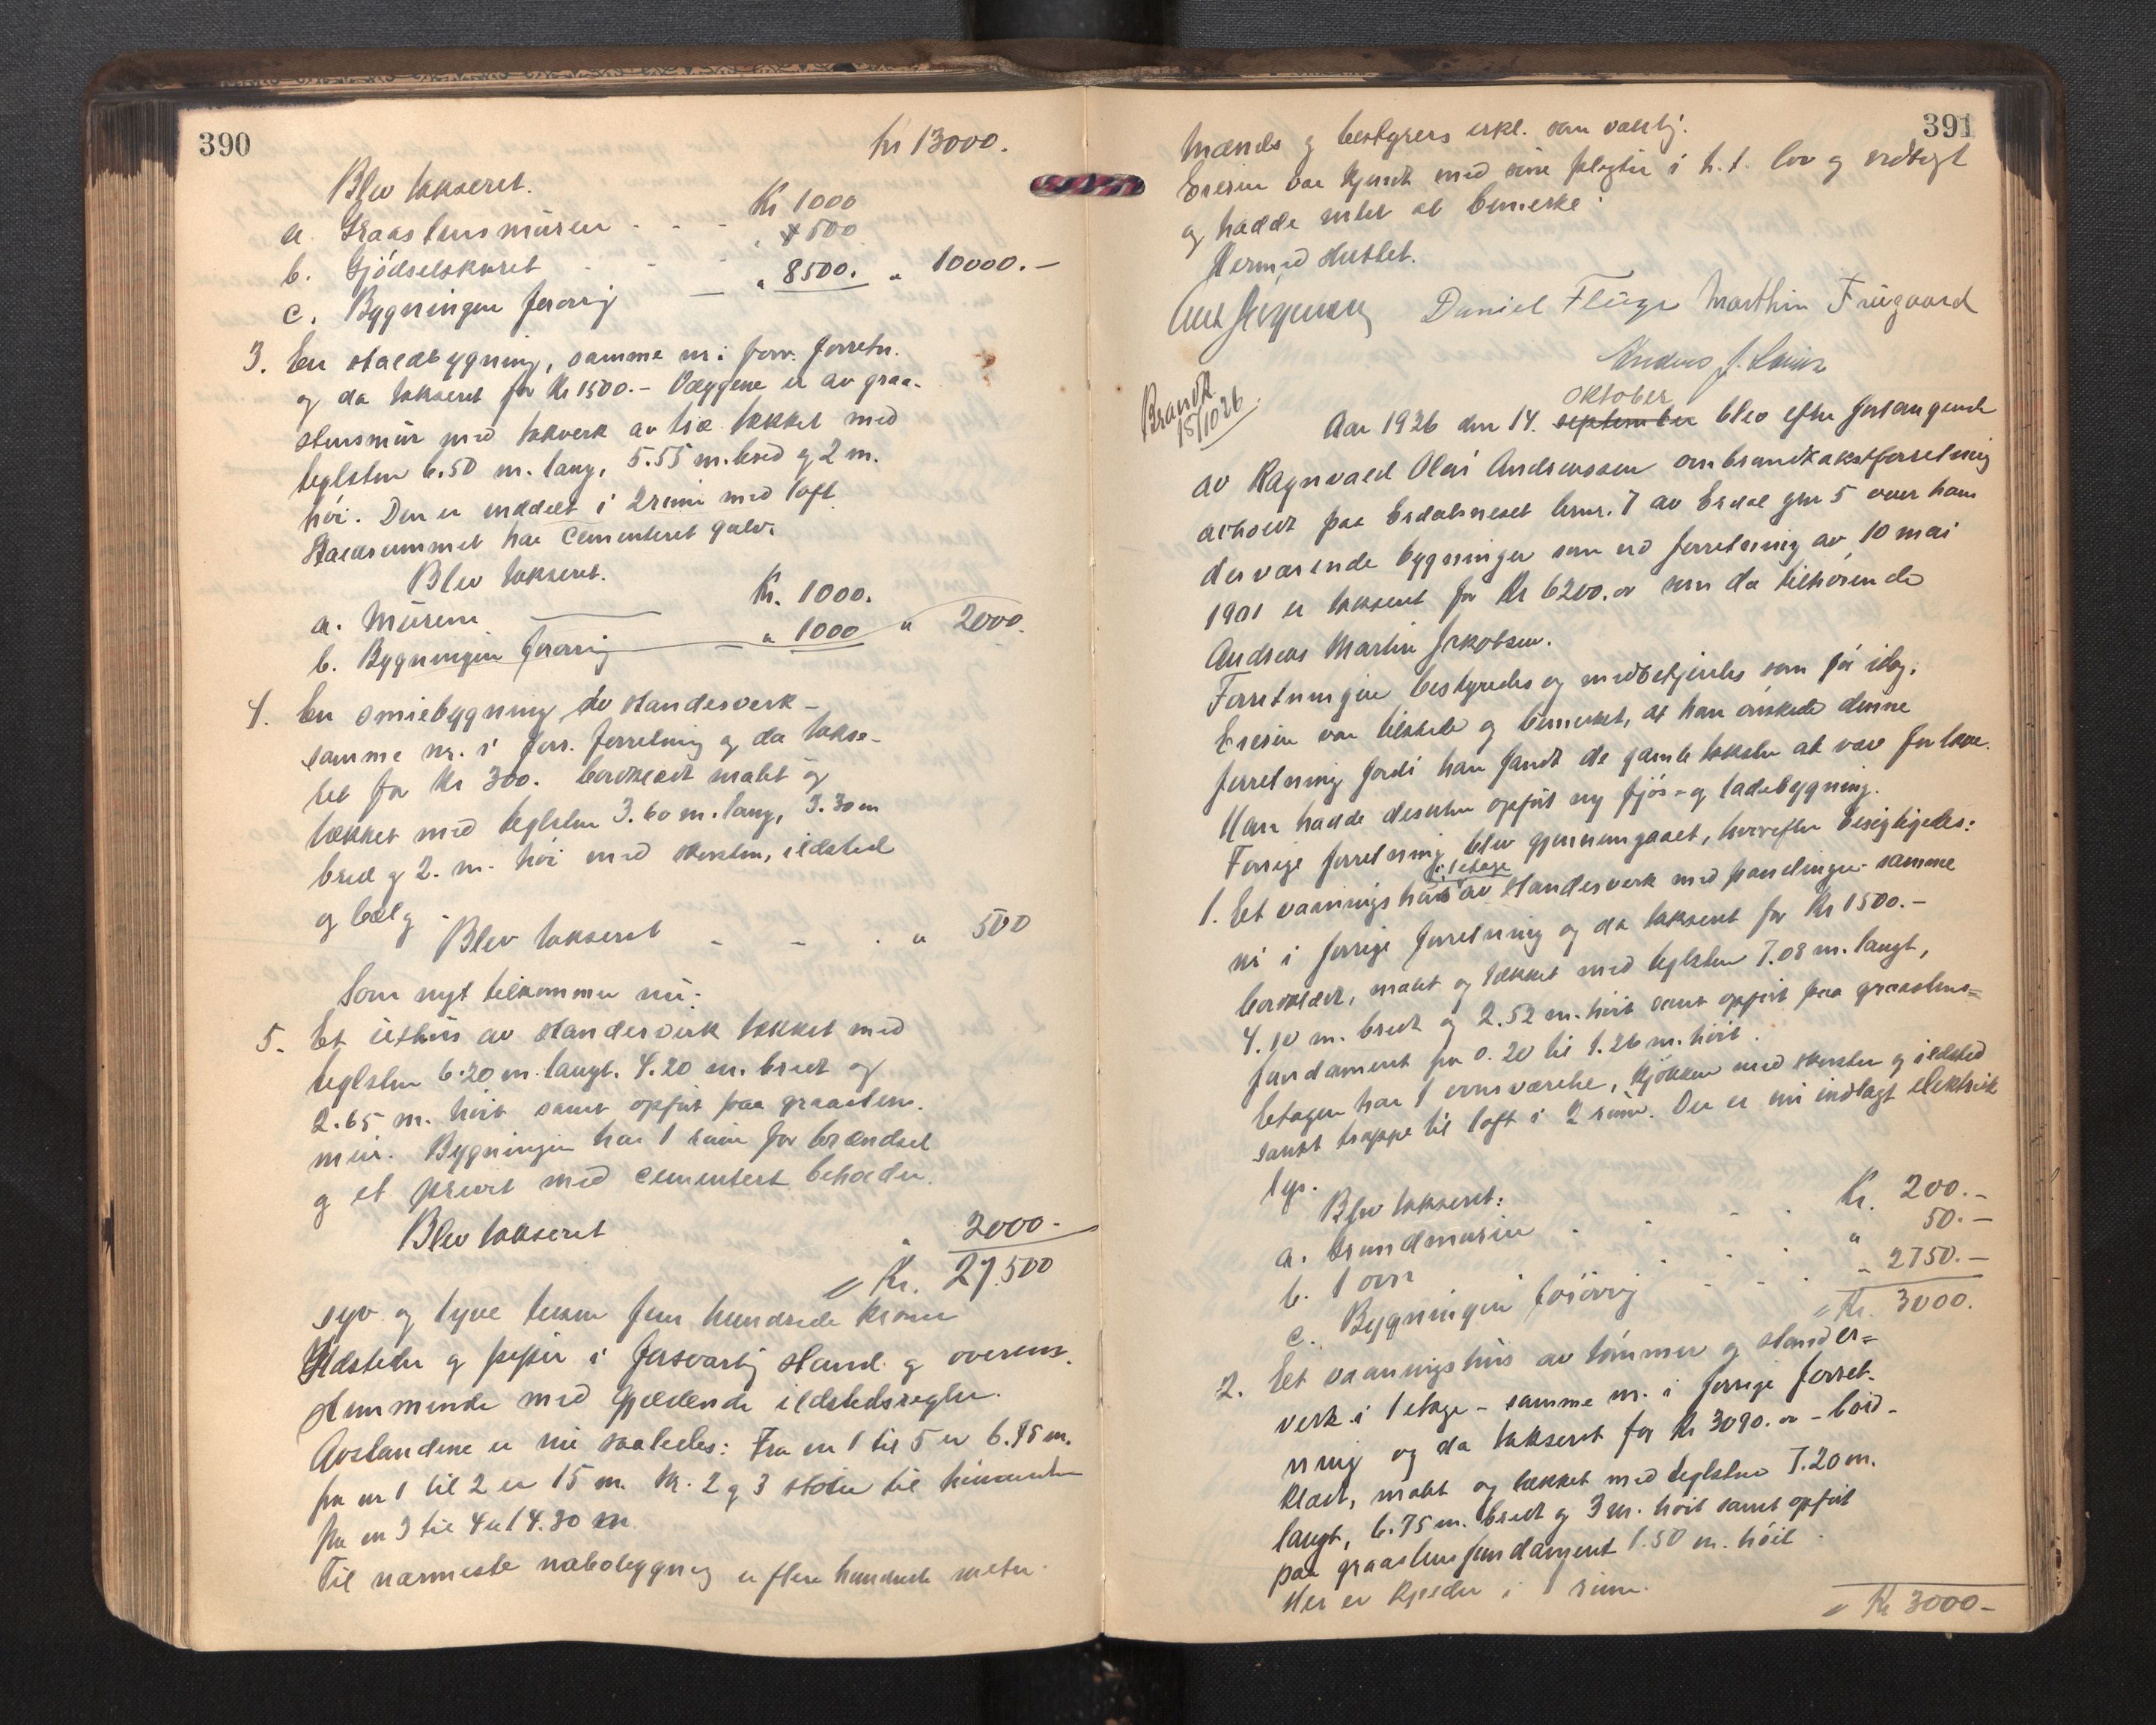 390
Kr 13000.
Blev takseret.
a. Graastensmuren - - - Kr 1000
b. Gjödselskuret - - - " 500
c. Bygningen forövrig — " 8500. " 10000.—
3. En staldbygning, samme nr i forr. forretn.
og da takseret for Kr 1500.- Væggene er av graa-
stensmur med takverk av træ tækket med
teglsten 6.50 m. lang, 5.55 m. bred og 2 m.
höi. Den er inddelt i 2 rum med loft.
Staldrummet har cementeret gulv.
Blev takseret.
a. Muren — Kr. 1000.
b. Bygningen forövrig — " 1000 " 2000.
4. En smiebygning av standerverk -
samme nr. i forr. forretning og da takse-
ret for Kr 300. bordklædt malet og
tækket med teglsten 3.60 m. lang, 3.30 m
bred og 2. m. höi med skorsten, ildsted
og bælg.
Blev takseret - - . " 500
Som nyt tilkommer nu:
5. Et uthus av standerverk tækket med
teglsten 6.20 m. langt. 4.20 m. bredt og
2.65 m. höit samt opfört paa graastens-
mur. Bygningen har 1 rum for brændsel
og et privet med cementert beholder.
Blev takseret " 2000.-
Kr. 27.500
syv og tyve tusen fem hundrede kroner
Ildsteder og piper i forsvarlig stand og overens-
stemmende med gjeldende ildstedsregler.
Avstandene er nu saaledes: Fra nr 1 til 5 er 6.95 m.
fra nr 1 til 2 er 15 m. Nr. 2 og 3 støter til hinanden
fra nr 3 til 4 er 14.30 m
Til nærmeste nabobygning er flere hundrede meter.
391
Mænds og bestyrers erkl. som vanlig.
Eieren var kjendt med sine pligter i h. t. lov og vedtægt
og hadde intet at bemerke.
Hermed sluttet.
Daniel Fluge Marthin Friigaard
Anders J.
Brandt.
15/10 26.
oktober
Aar 1926 den 14. september blev efter forlangende
av Ragnvald Olai Andreassen ombrandtakstforretning
avholdt paa Erdalsneset brnr. 7 av Erdal gnr 5 over hans
derværende bygninger som ved forretning av 10 mai
1901 er takseret for Kr 6200.oo som da tilhörende
Andreas Martin Jakobsen.
Forretningen bestyredes og medbetjentes som för idag.
Eieren var tilstede og bemerket, at han önskede denne
forretning fordi han fandt de gamle takster at være for lave.
Han hadde desuten opfört ny fjös- og ladebygning.
Forrige forretning blev gjennemgaaet, hvorefter besigtigedes:
i 1 etage
1. Et vaaningshus av standerverk med panelinger samme
nr i forrige forretning og da takseret for Kr 1500.-
bordklædt, malet og tækket med teglsten 7.08 m. langt,
4.10 m. bredt og 2.52 m. höit samt opfört paa graastens-
fundament fra 0.20 til 1.26 m. höit.
Etagen har 1 ovnsværelse, kjökken med skorsten og ildsted
samt trappe til loft i 2 rum. Der er nu indlagt elektrisk
lys.
Blev takseret:
a. Grundmuren . . . . Kr. 200.-
b. 1 ovn . . . " 50.-
c. Bygningen forövrig - - . - 2750.-
Kr. 3000.
2. Et vaaningshus av tömmer og stander-
verk i 1 etage - samme nr. i forrige forret-
ning og da takseret for Kr 3090.oo - bord-
klædt, malet og tækket med teglsten 7.20 m.
langt, 6.75 m. bredt og 3 m. höit samt opfört
paa graastensfundament 1.50 m. höit.
Her er kjelder i 1 rum.
Kr 3000-